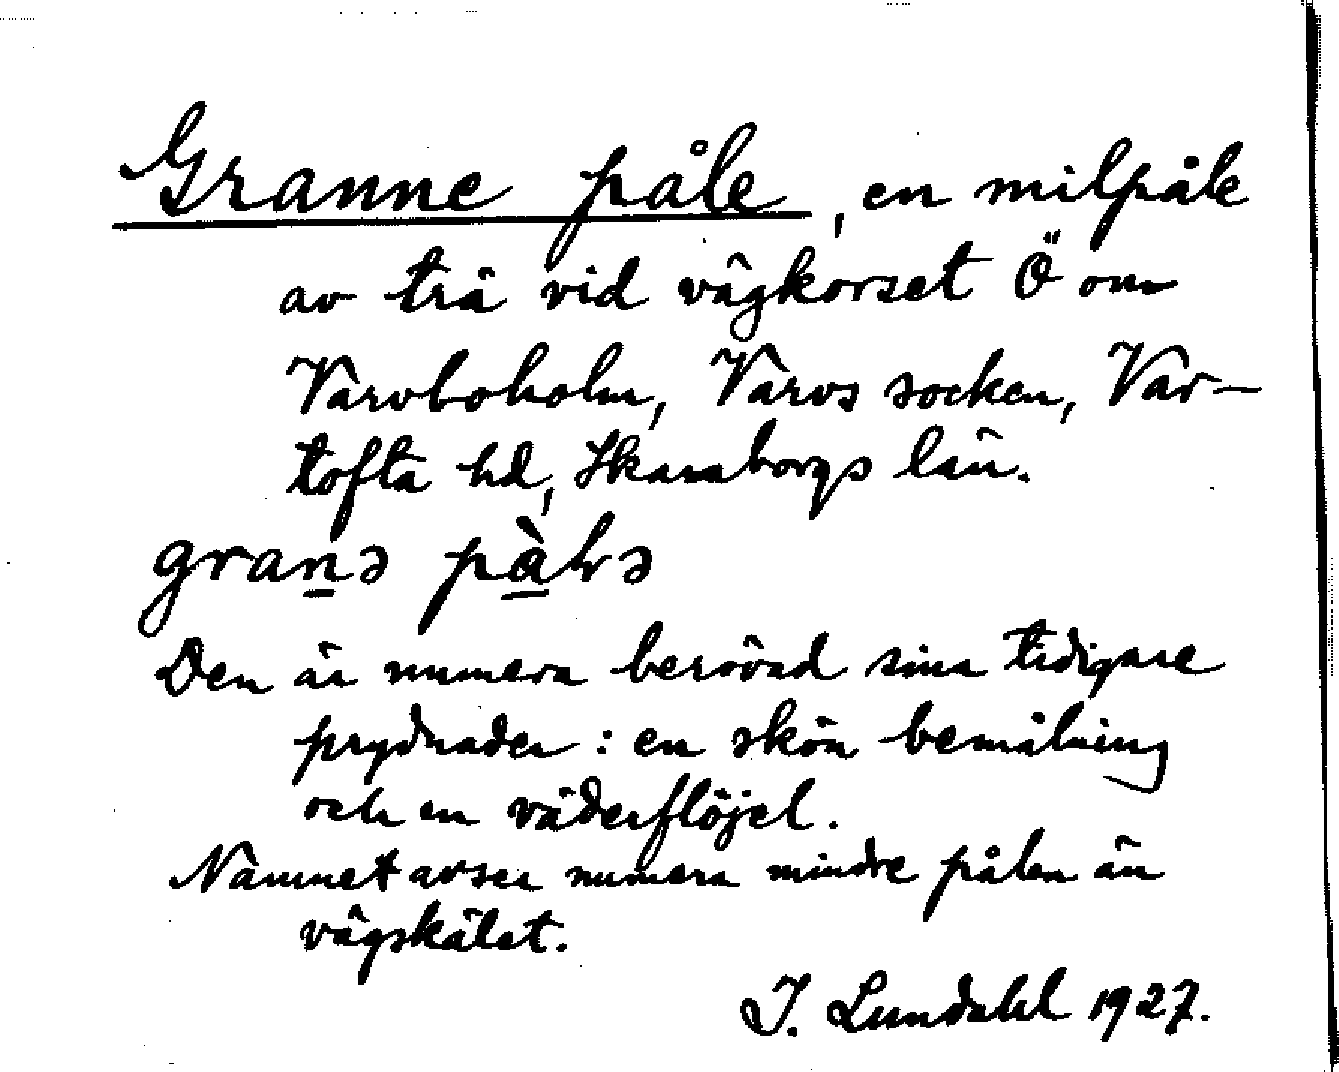 Granne påle, en milpåle
av trä vid vägkorset Ö om
Varvboholm, Varvs socken, Var-
tofta hd, Skaraborgs län.
granə pàlɘ
Den är numera berövad sina tidigare
prydnader: en skön bemålning
och en väderflöjel.
Namnet avser numera mindre pålen än
vägskälet.
I. Lundahl 1927.